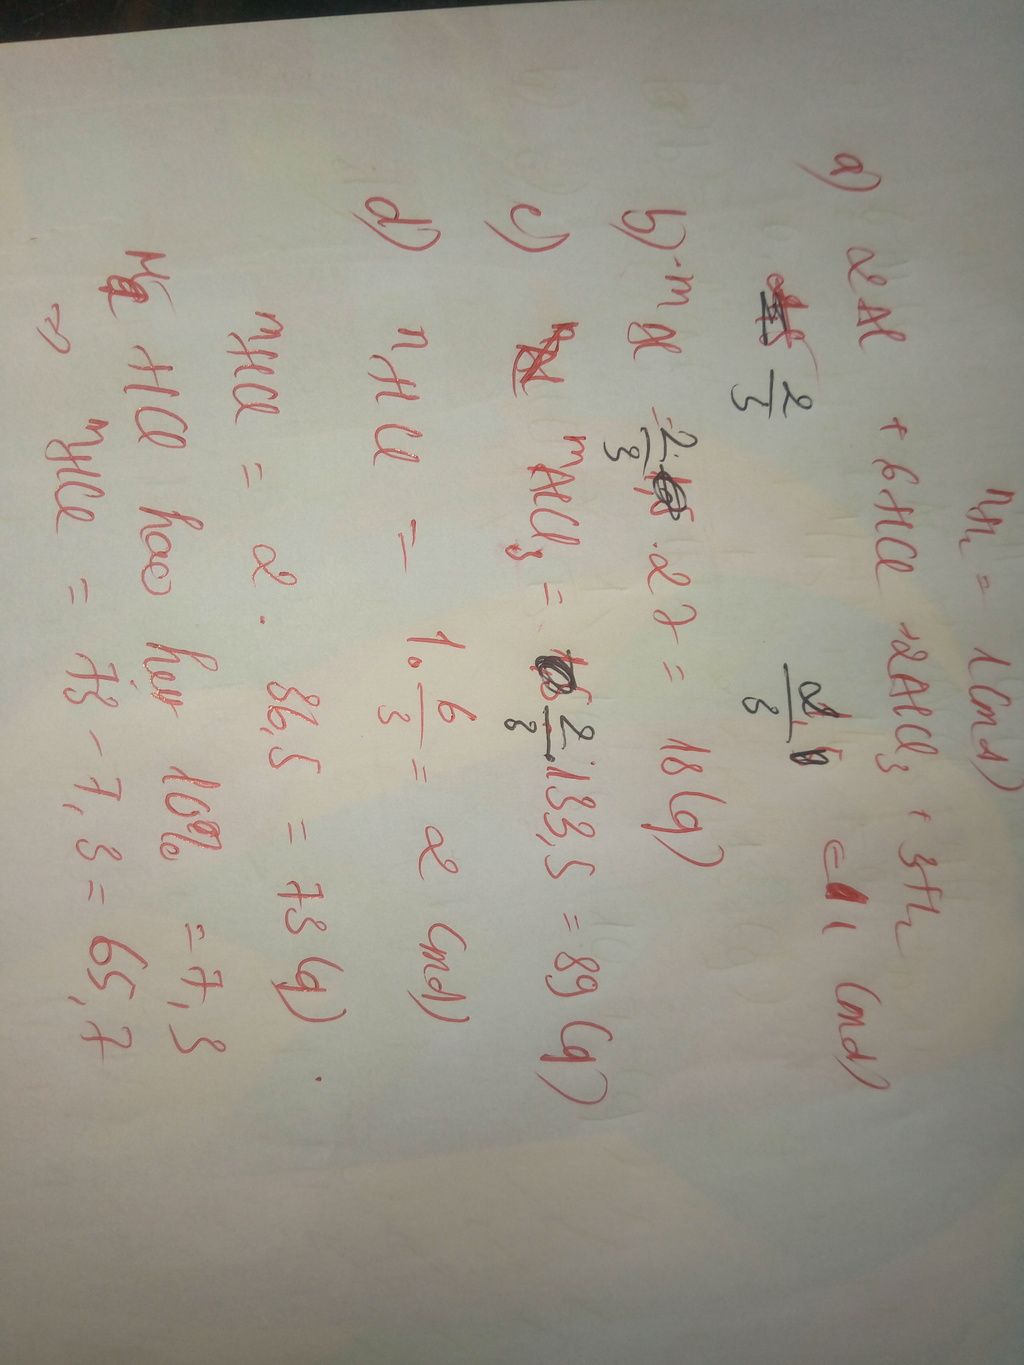 nH₂ = 1 (mol)
a) 2Al + 6HCl → 2AlCl₃ + 3H₂
2/3 2/3 ← 1 (mol)
b) mAl = 2/3 . 27 = 18 (g)
c) mAlCl₃ = 2/3 . 133,5 = 89 (g)
d) nHCl = 1. 6/3 = 2 (mol)
mHCl = 2. 36,5 = 73 (g)
HCl hao hụt 10% = 7,3
=> mHCl = 73 - 7,3 = 65,7